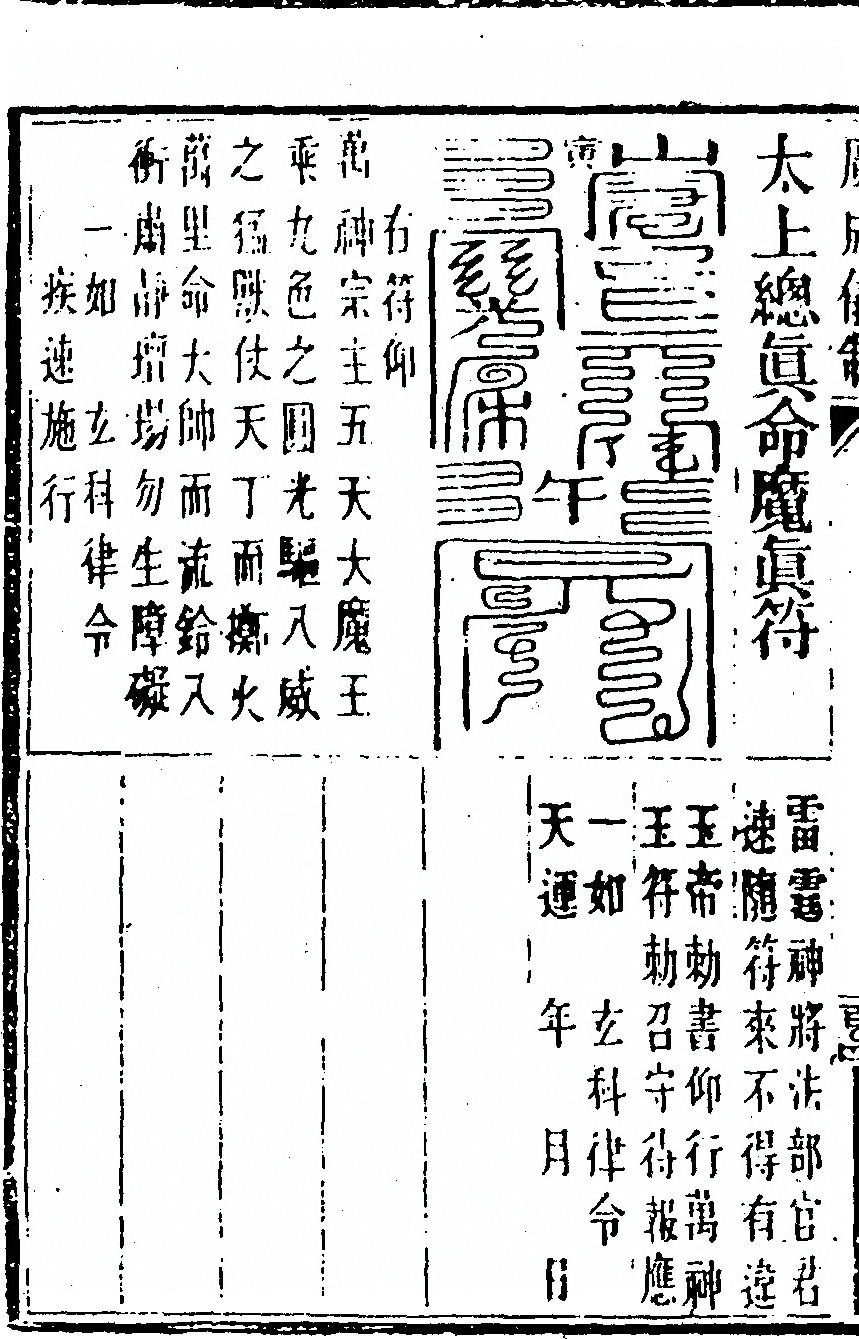 廣成儀制
太上總眞命魔眞符
寅
午
右符仰
萬神宗主五天大魔王
乘九色之圓光驅八威
之猛獸仗天丁而擲火
萬里命大帥而流鈴八
衝肅靜壇場勿生障礙
一如 玄科律令
疾速施行
雷霆神將法部官君
速隨符來不得有違
玉帝勅書仰行萬神
玉符勅召守待報應
一如 玄科律令
天運 年 月 日